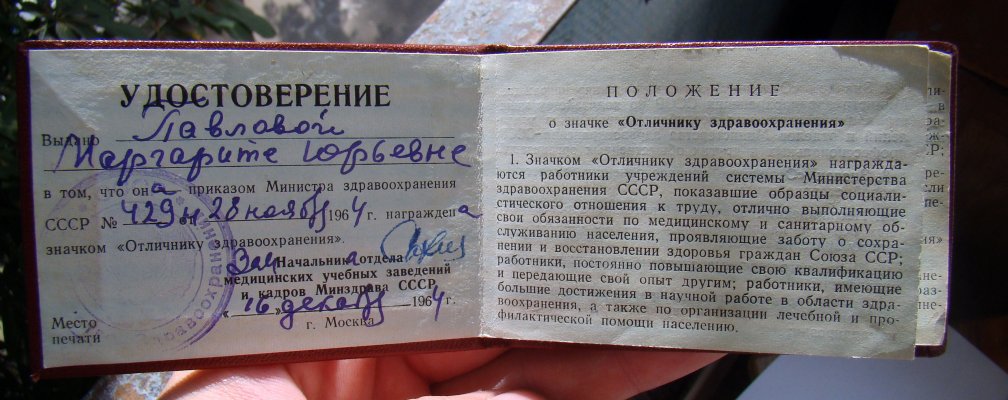 УДОСТОВЕРЕНИЕ
Выдано Павловой
Маргарите Юрьевне
в том, что она приказом Министра здравоохранения
СССР № 429н 28 ноября 1964 г. награждена
значком «Отличнику здравоохранения».
Зам Начальника отдела
медицинских учебных заведений
и кадров Минздрава СССР
«16» декабря 1964 г.
Место
печати
г. Москва
ПОЛОЖЕНИЕ
о значке «Отличнику здравоохранения»
1. Значком «Отличнику здравоохранения» награжда-
ются работники учреждений системы Министерства
здравоохранения СССР, показавшие образцы социали-
стического отношения к труду, отлично выполняющие
свои обязанности по медицинскому и санитарному об-
служиванию населения, проявляющие заботу о сохра-
нении и восстановлении здоровья граждан Союза ССР;
работники, постоянно повышающие свою квалификацию
и передающие свой опыт другим; работники, имеющие
большие достижения в научной работе в области здра-
воохранения, а также по организации лечебной и про-
филактической помощи населению.